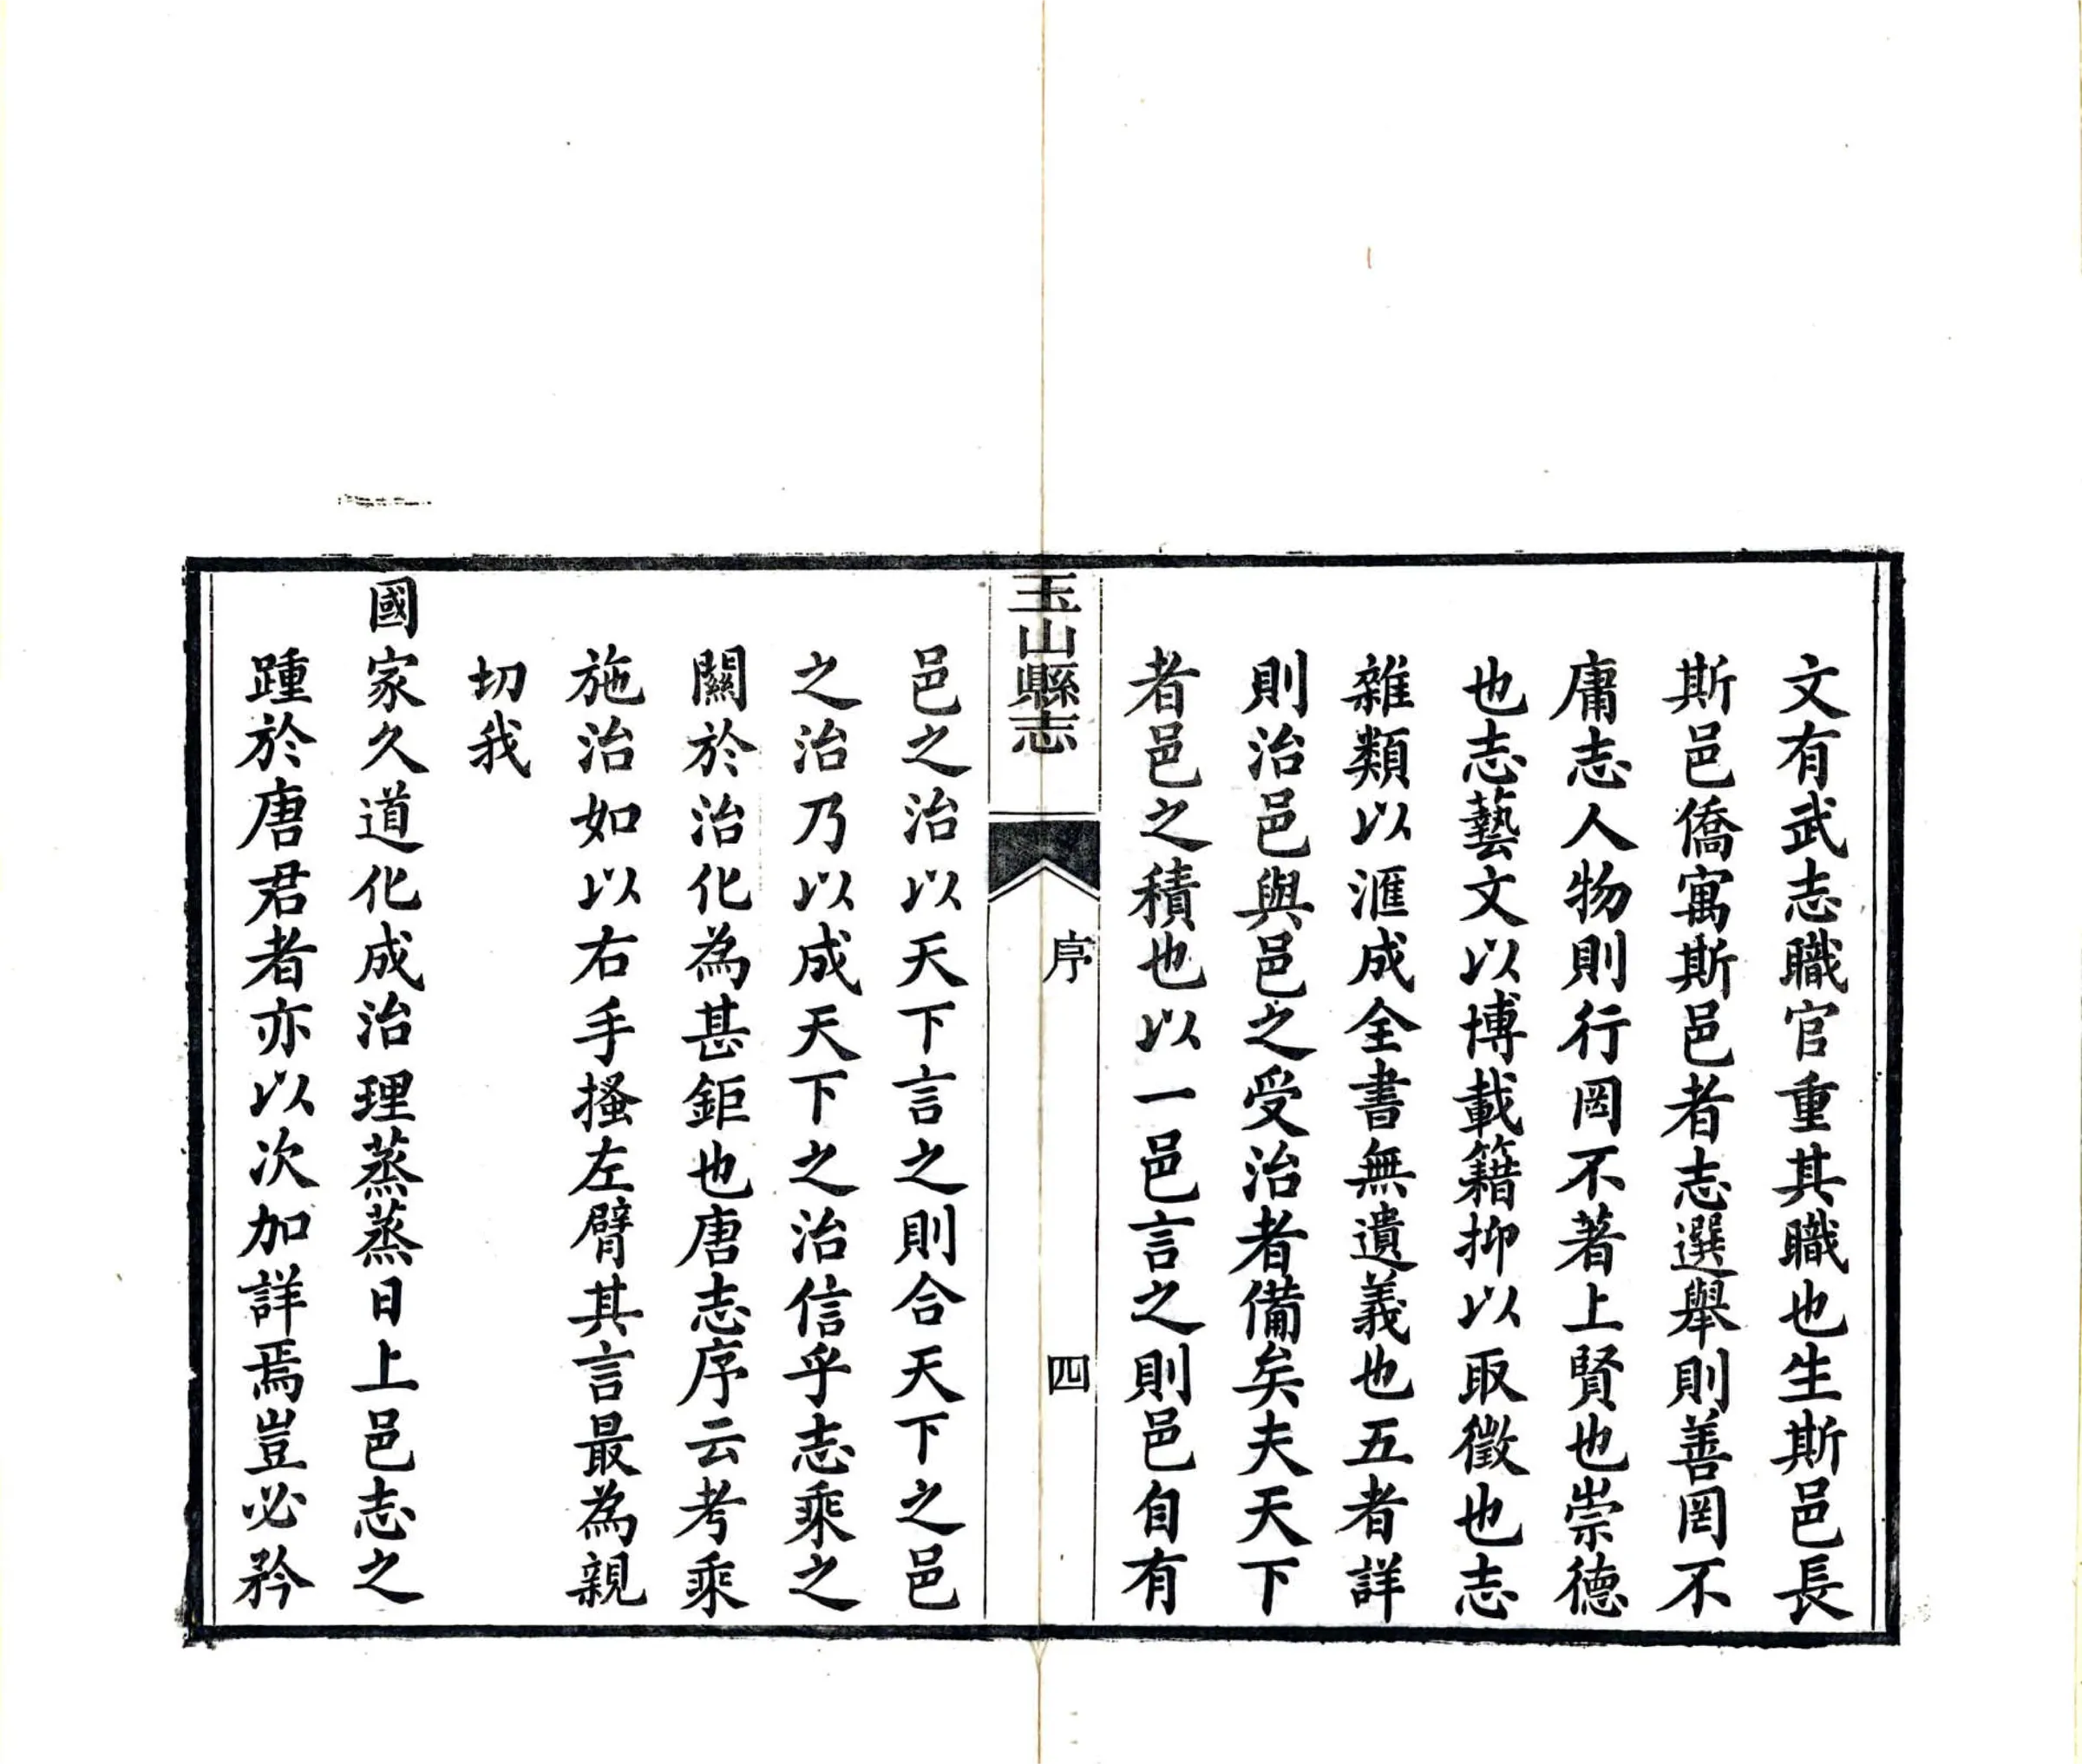 文有武志職官重其職也生斯邑長
斯邑僑寓斯邑者志選舉則善罔不
庸志人物則行罔不著上賢也崇德
也志藝文以博載籍抑以取徵也志
雜類以滙成全書無遺義也五者詳
則治邑與邑之受治者備矣夫天下
者邑之積也以一邑言之則邑自有
玉山縣志
序
四
邑之治以天下言之則合天下之邑
之治乃以成天下之治信乎志乘之
關於治化為甚鉅也唐志序云考乘
施治如以右手搔左臂其言最為親
切我
國家久道化成治理蒸蒸日上邑志之
踵於唐君者亦以次加詳焉豈必矜